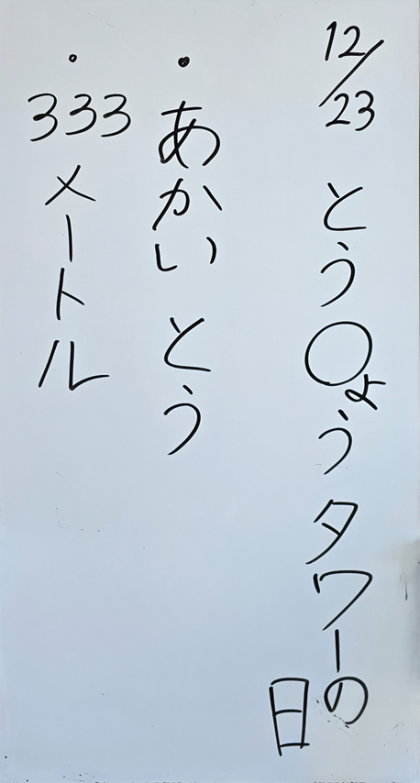 12/23 とう○ょうタワーの日
・あかいとう
・333メートル